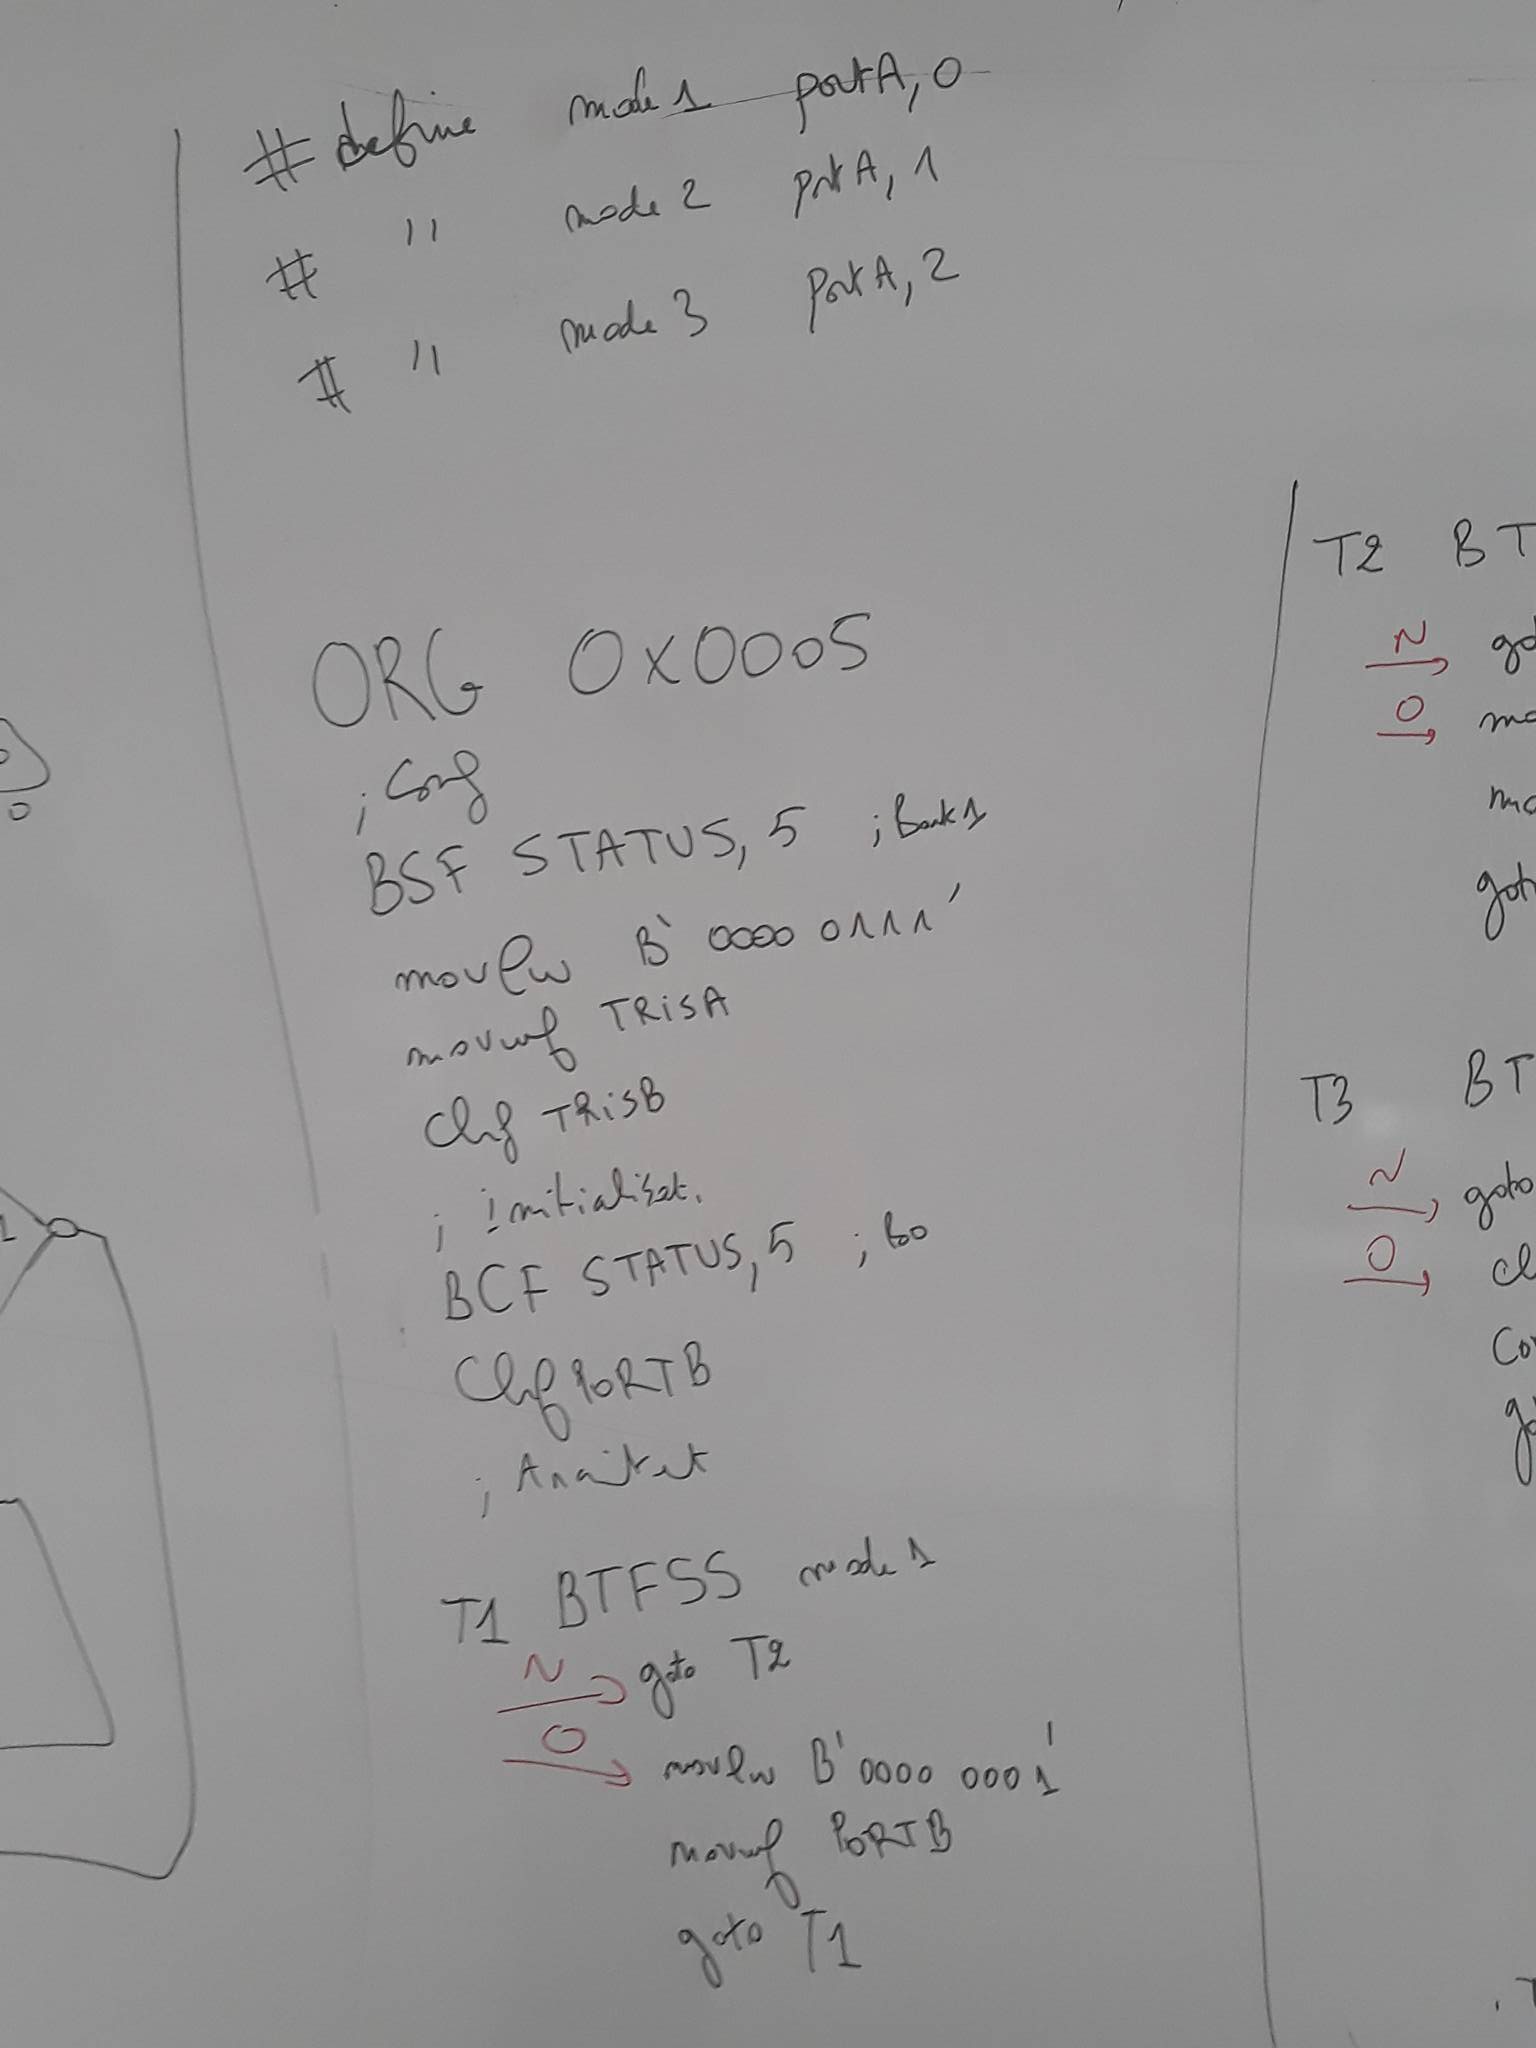 #define mode1 portA,0
# " mode2 portA,1
# " mode3 PortA,2
ORG 0x0005
; Conf
BSF STATUS,5 ; Bank1
movlw B'0000 0111'
movwf TRISA
Clrf TRISB
; initialisat.
BCF STATUS,5 ; B0
Clrf PORTB
;
T1 BTFSS mode1
N goto T2
O movlw B'0000 0001'
movwf PORTB
goto T1
T2 BT
N go
O mo
mo
goto
T3 BT
N goto
O cl
Co
go